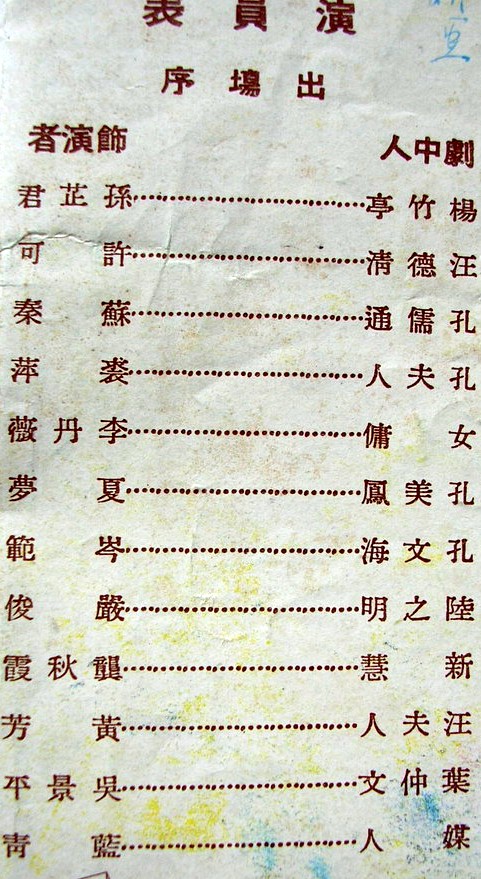 演員表
出場序
劇中人 飾演者
楊竹亭………孫芷君
汪德清………許可
孔儒通………蘇秦
孔夫人………裘萍
女傭………李丹薇
孔美鳳………夏夢
孔文海………岑範
陸之明………嚴俊
新慧………龔秋霞
汪夫人………黃芳
葉仲文………吳景平
媒人………藍青